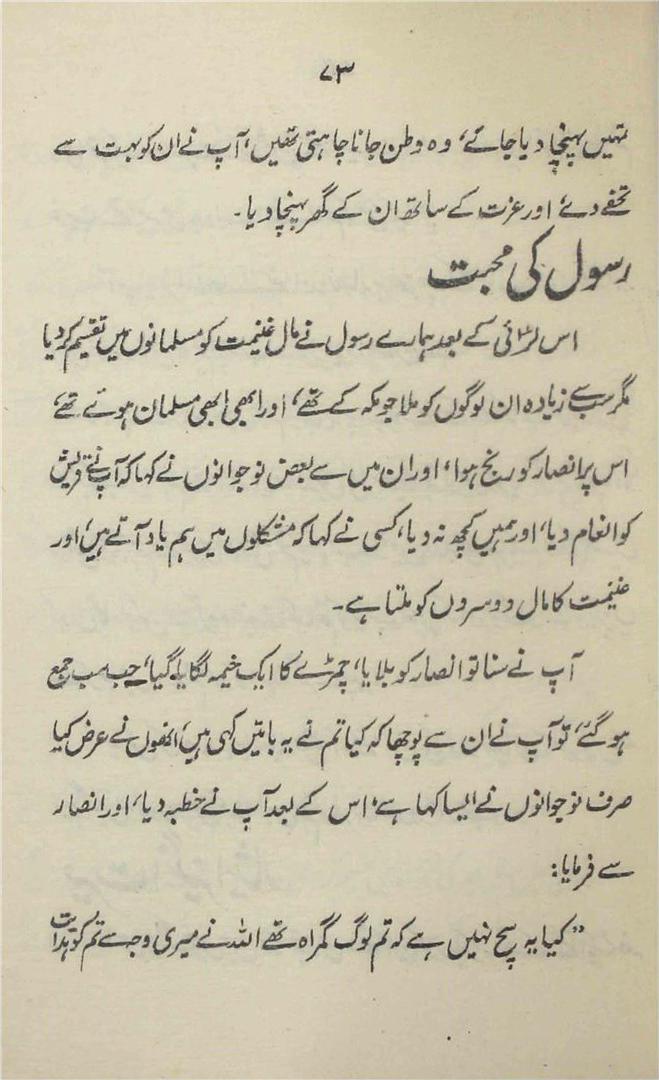 ۷۳
تمہیں پہنچا دیا جائے، وہ وطن جانا چاہتی تھیں، آپ نے ان کو بہت سے
تحفے دئے اور عزت کے ساتھ ان کے گھر پہنچا دیا۔
رسول کی محبت
اس لڑائی کے بعد ہمارے رسول نے مال غنیمت کو مسلمانوں میں تقسیم کر دیا
مگر سب سے زیادہ ان لوگوں کو ملا جو مکہ کے تھے، اور ابھی ابھی مسلمان ہوئے تھے
اس پر انصار کو رنج ہوا، اور ان میں سے بعض نوجوانوں نے کہا کہ آپ نے قریش
کو انعام دیا، اور ہمیں کچھ نہ دیا، کسی نے کہا کہ مشکلوں میں ہم یاد آتے ہیں، اور
غنیمت کا مال دوسروں کو ملتا ہے۔
آپ نے سنا تو انصار کو بلایا، چمڑے کا ایک خیمہ لگایا گیا، جب سب جمع
ہو گئے، تو آپ نے ان سے پوچھا کہ کیا تم نے یہ باتیں کہی ہیں، انھوں نے عرض کیا
صرف نوجوانوں نے ایسا کہا ہے، اس کے بعد آپ نے خطبہ دیا، اور انصار
سے فرمایا:
” کیا یہ سچ نہیں ہے کہ تم لوگ گمراہ تھے اللہ نے میری وجہ سے تم کو ہدایت